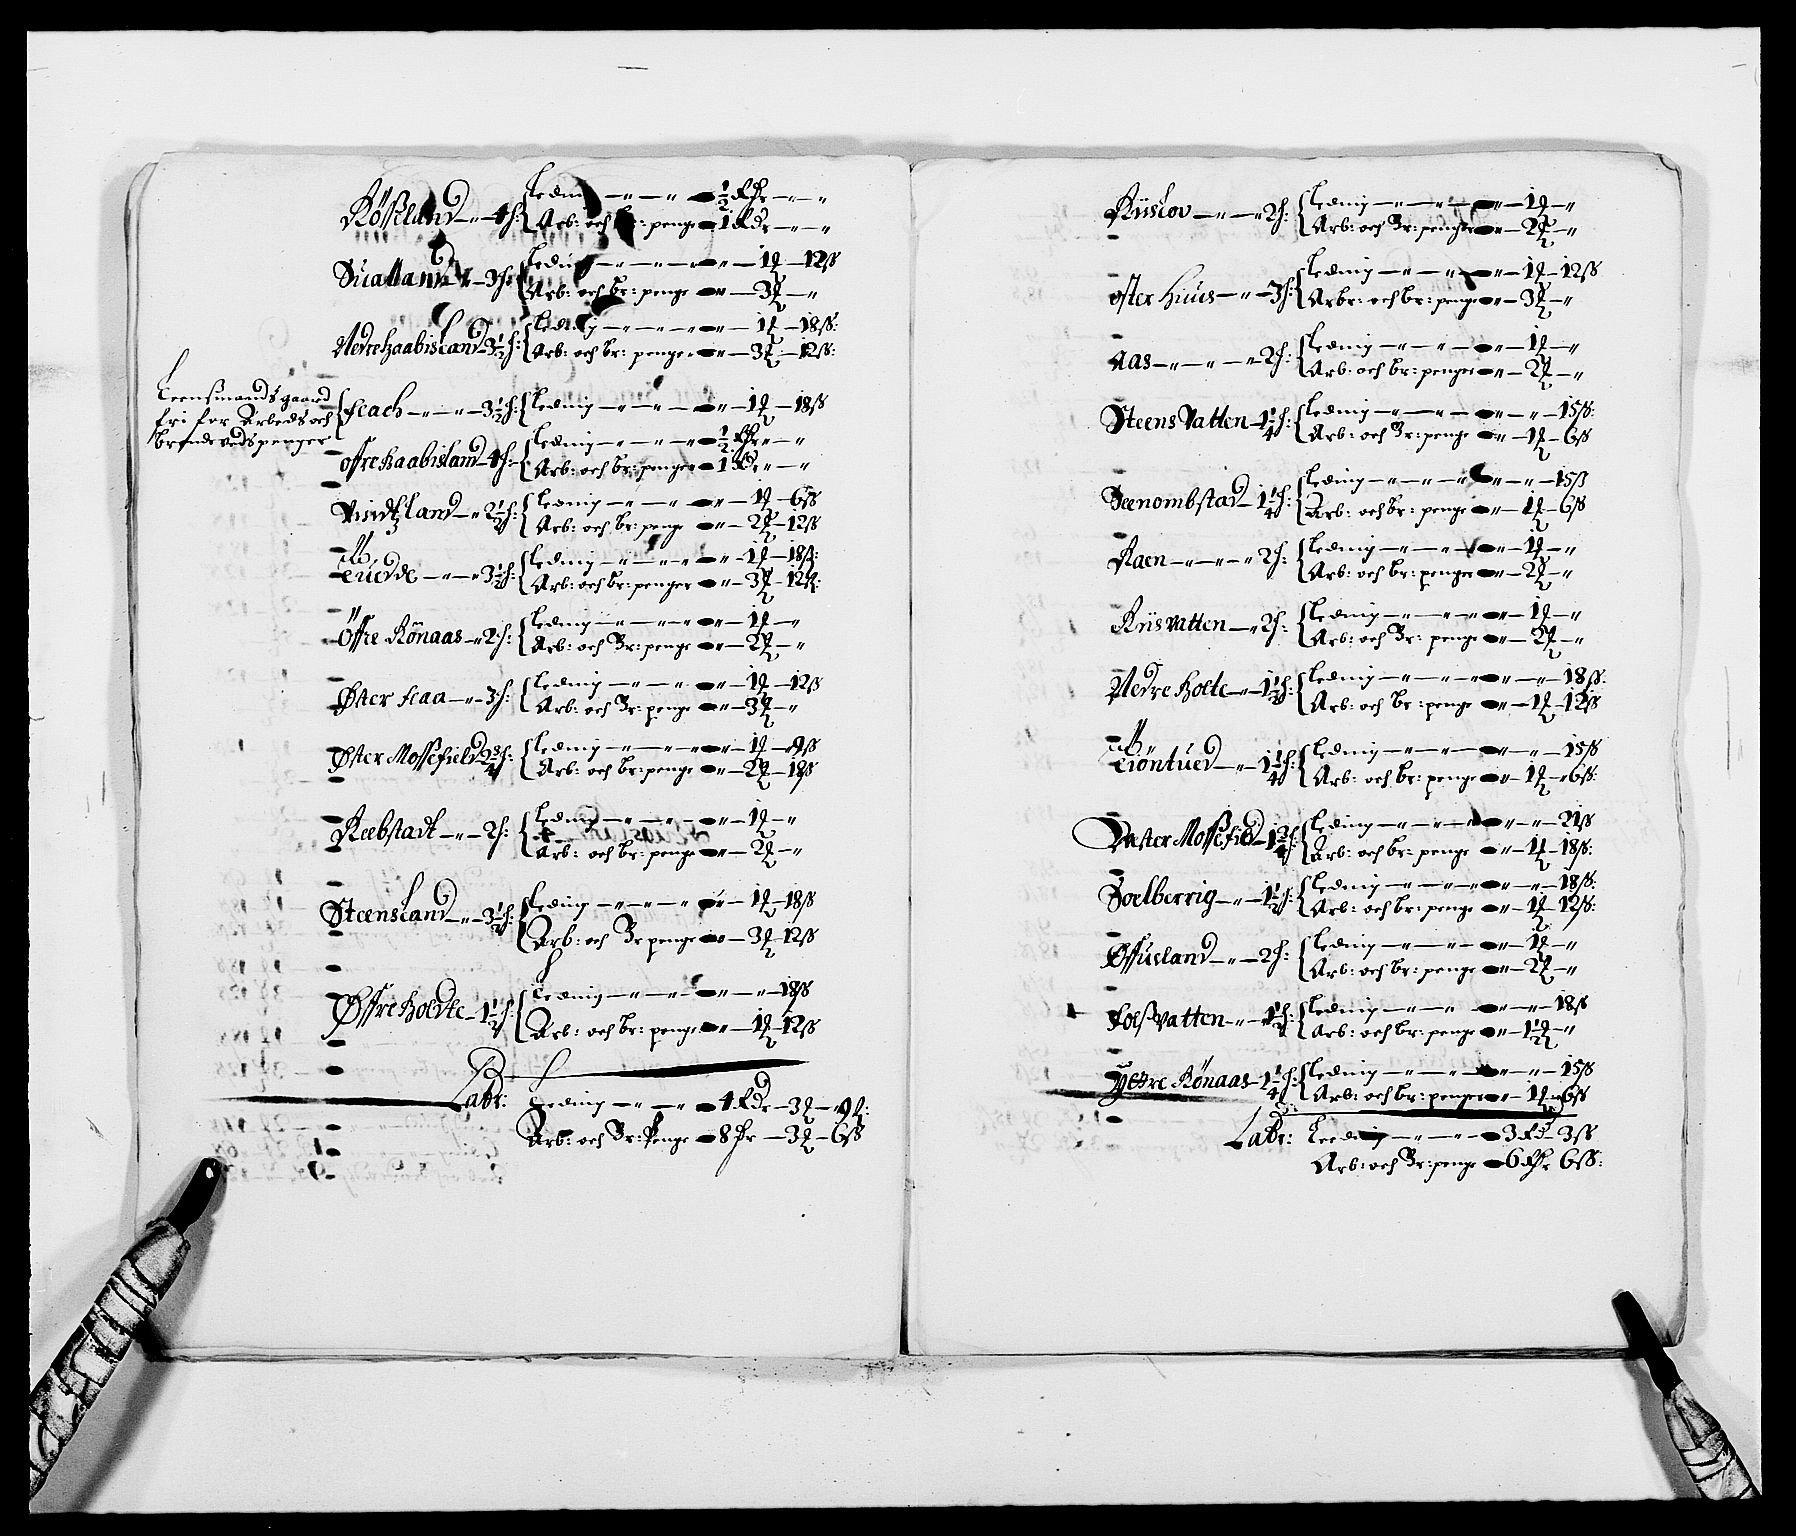 Rösseland – " – 4 h: { Leding – " – " – ½ Rdr – " – "
Arb: och br: penge 1 Rdr – " – "
Suaaland – " – 3 h: { Leding – " – " – " – 1 q – 12 ss
Arb: och br: penge – " – 3 q – "
Nedre haabisland – 3½ h: { Leding – " – " – " – 1 q – 18 ss:
Arb: och br: penger – " – 3 q – 12 ss:
Leensmands gaard
fri for Arbeds och
brendeveds penger
{ fcach – " – " – 3½ h: { Leding – " – " – " – 1 q – 18 ss
offre haabisland – 4 h: { Leding – " – " – " – ½ Rdr " – "
Arb: och br: penger 1 Rdr " – "
Vindtzland – " 2½ h: { Leding – " – " – " – 1 q – 6 ss
Arb: och br: penge – " – 2 q – 12 ss
Tuedde – " – " 3½ h: { Leding – " – " – " – 1 q – 18 ss:
Arb: och br: penger – " – 3 q – 12 ss:
Öffre Rönaas – " 2 h: { Leding – " – " – " – 1 q – "
Arb: och Br: penge – " – 2 q – "
Øster flaa – " – 3 h: { Leding – " – " – " – 1 q – 12 ss
Arb: och Br: penge – " – 3 q – "
Øster Mossefield 2¾ h: { Leding – " – " – " – 1 q – 9 ss
Arb: och br: penge – " – 2 q – 18 ss
Reebstadt – " – 2 h: { Leding – " – " – " – 1 q – "
Arb: och br: penge – " – 2 q – "
Steensland – " – 3½ h: { Leding – " – " – " – 1 q – 18 ss
Arb: och Br penge – " – 3 q – 12 ss
Øffre holdte – 1½ h: { Leding – " – " – " – " – 18 ss
Arb: och br: penge – " – 1 q – 12 ss
Labr: Leding – " – " – 4 Rdr – 3 q – 9 ss:
Arb: och Br: Penge 8 Rr – 3 q – 6 ss
Riislov – " – " 2 h: { Leding – " – " – " – 1 q – "
Arb: och Br: penger – " – 2 q – "
øster huus – " – 3 h: { Leding – " – " – " – 1 q – 12 ss
Arbr: och br: penge – " – 3 q – "
Aas – " – " – " 2 h: { Leding – " – " – " – 1 q – "
Arb: och br: penger – " – 2 q – "
Steens Vatten – 1¼ h: { Leding – " – " – " – " – 15 ss:
Arb: och Br: penge – " – 1 q – 6 ss
Seenombstad – 1¼ h: { Leding – " – " – " – " – 15 ss
Arb: och br: penge – " – 1 q – 6 ss
Raen – " – " – " 2 h: { Leding – " – " – " – 1 q – "
Arb: och br: penger – " – 2 q – "
Riisvatten – " 2 h: { Leding – " – " – " – 1 q – "
Arb: och Br: penge – " – 2 q – "
Nedre holte – " 1½ h: { Leding – " – " – " – " – 18 ss:
Arb: och br: penge – " – 1 q – 12 ss
Tiöntued – " – 1¼ h: { Leding – " – " – " – " – 15 ss
Arb: och br: penge – " – 1 q – 6 ss:
Vester Mossefield – 1¾ h: { Leding – " – " – " – " – 21 ss
Arb: och br: penge – " – 1 q – 18 ss:
Soelberrig – " – 1½ h: { Leding – " – " – " – " – 18 ss:
Arb: och br: penge – " – 1 q – 12 ss:
Øffusland – " – 2 h: { Leding – " – " – " – 1 q – "
Arb: och br: penge – " – 2 q – "
foessvatten – " – 1½ h: { Leding – " – " – " – " – 18 ss
Arb: och br: penge – " – 1½ q – "
Yttre Rönaas – 1¼ h: { Leding – " – " – " – " – 15 ss
Arb: och br: penge – " – 1 q – 6 ss
Labr: Leeding – " – " – 3 Rd – 3 ss
Arb: och Br: penge 6 Rdr 6 ss: